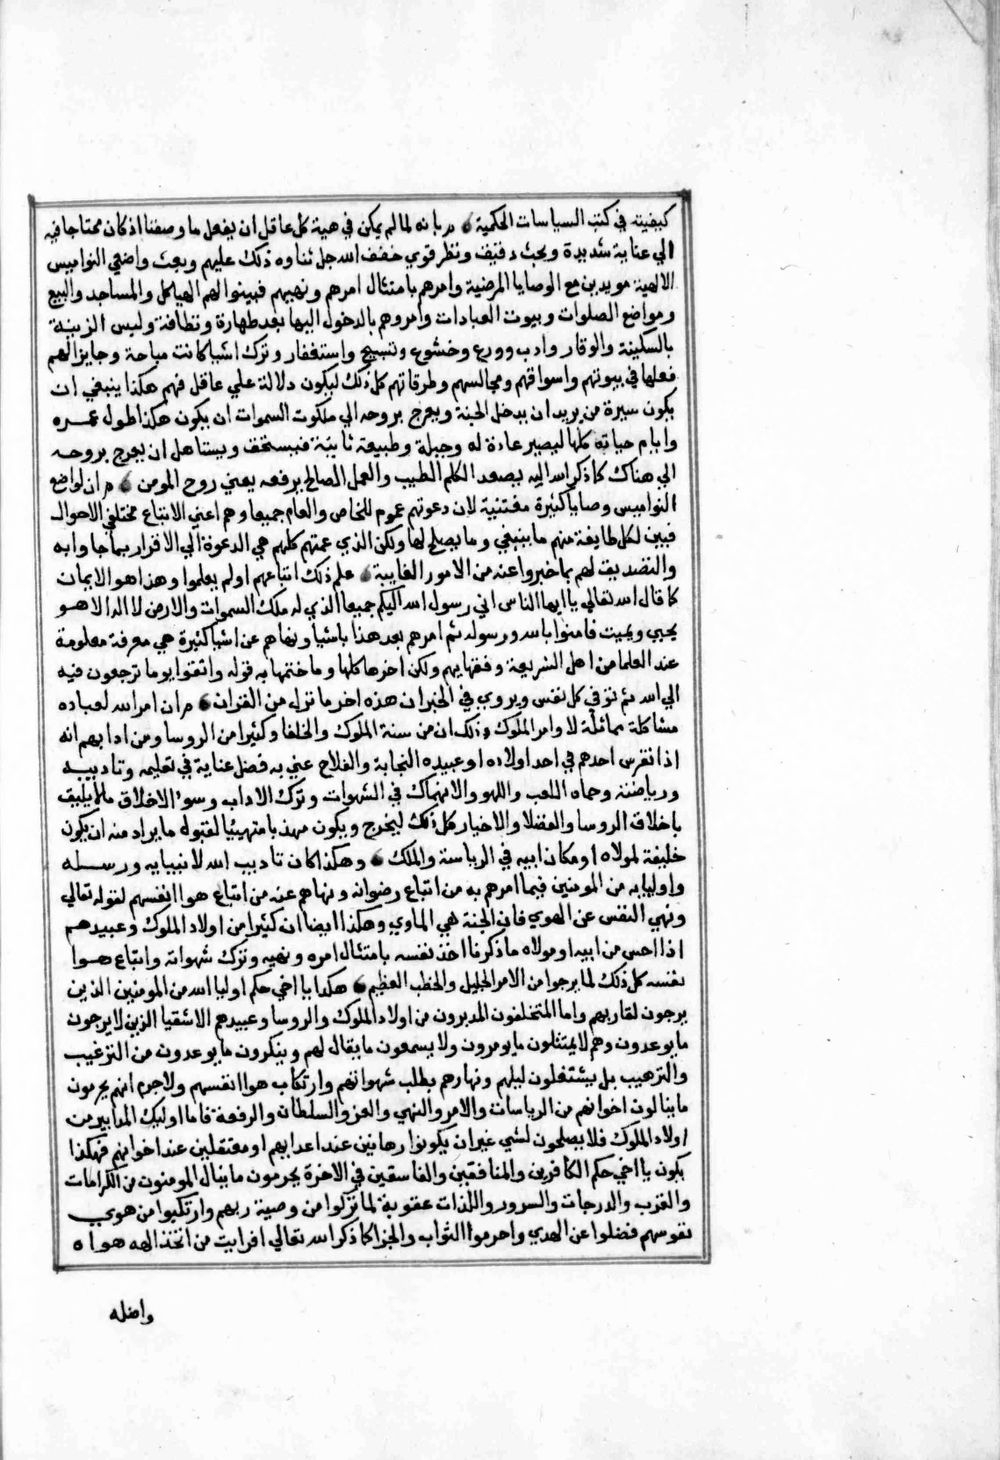 كيفيته في كتب السياسات الحكمية ۞ ثم بانه لما لم يكن في هية كل عاقل ان يفعل ما وصفنا اذ كان محتاجا فيه
الي عناية شديدة وبحث دقيق ونظر قوي خفف الله جل ثناوه ذلك عليهم وبعث واضعي النواميس
الالهية مويدين مع الوصايا المرضية وامرهم بامتثال امرهم ونهيهم فبينوا لهم الهياكل والمساجد والبيع
ومواضع الصلوات وبيوت العبادات وامروهم بالدخول اليها بعد طهارة ونظافة ولبس الزينة
بالسكينة والوقار وادب وورع وخشوع وتسبيح واستغفار وترك اشيا كانت مباحة وجايز لهم
فعلها في بيوتهم واسواقهم ومجالسهم وطرقاتهم كل ذلك ليكون دلالة علي عاقل فهم هكذا ينبغي ان
يكون سيرة من يريد ان يدخل الجنة ويعرج بروحه الي ملكوت السموات ان يكون هكذا طول عمره
وايام حياته كلها ليصير عادة له وجبلة وطبيعة ثابتة فيستحق ويستاهل ان يعرج بروحه
الي هناك كما ذكر الله اليه يصعد الكلم الطيب والعمل الصالح يرفعه يعني روح المومن ۞ ثم ان لواضع
النواميس وصايا كثيرة مفتنية لان دعوتهم عموم للخاص والعام جميعا وهم اعني الاتباع مختلفي الاحوال
فبين لكل طايفة منهم ما ينبغي وما يصلح لها ولكن الذي عمتهم كلهم هي الدعوة الي الاقرار بما جاوا به
والتصديق لهم بما خبروا عنه من الامور الغايبة ۞ علم ذلك اتباعهم او لم يعلموا وهذا هو الايمان
كما قال الله تعالي يا ايها الناس اني رسول الله اليكم جميعا الذي له ملك السموات والارض لا اله الا هو
يحيي ويميت فامنوا بالله ورسوله ثم امرهم بعد هذا باشيا ونهاهم عن اشيا كثيرة هي معرفة معلومة
عند العلما من اهل الشريعة وفقهايهم ولكن اخرها كلها وما ختمها به قوله واتقوا يوما ترجعون فيه
الي الله ثم توفي كل نفس ويروي في الخبر ان هذه اخر ما نزل من القران ۞ ثم ان امر الله لعباده
مشاكلة مماثلة لاوامر الملوك وذلك ان من سنة الملوك والخلفا وكثيرا من الروسا ومن ادابهم انه
اذا تفرس احدهم في احد اولاده او عبيده النجابة والفلاح عني به فضل عناية في تعليمه وتاديبه
ورياضته وحماه اللعب واللهو والانهماك في الشهوات وترك الاداب وسو الاخلاق مما لا يليق
باخلاق الروسا والفضلا والاخيار كل ذلك ليخرج ويكون مهذبا متهييا لقبول ما يراد منه ان يكون
خليفة لمولاه او مكان ابيه في الرياسة والملك ۞ وهكذا كان تاديب الله لانبيايه ورسله
واوليايه من المومنين فيما امرهم به من اتباع رضوانه ونهاهم عنه من اتباع هوا انفسهم لقوله تعالي
ونهي النفس عن الهوي فان الجنة هي الماوي وهكذا ايضا ان كثيرا من اولاد الملوك وعبيدهم
اذا احس من ابيه او مولاه ما ذكرنا اخذ نفسه بامتثال امره ونهيه وترك شهواته واتباع هوا
نفسه كل ذلك لما يرجوا من الامر الجليل والخطب العظيم ۞ هكذا يا اخي حكم اوليا الله من المومنين الذين
يرجون لقا ربهم واما المتخلفون المدبرون من اولاد الملوك والروسا وعبيدهم الاشقيا الذين لا يرجون
ما يوعدون وهم لا يمتثلون ما يومرون ولا يسمعون ما يقال لهم وينكرون ما يوعدون من الترغيب
والترهيب بل يشتغلون ليلهم ونهارهم بطلب شهواتهم وارتكاب هوا انفسهم ولا جرم انهم يحرمون
ما ينالون اخوانهم من الرياسات والامر والنهي والعز والسلطان والرفعة فاما اوليك المدابير من
اولاد الملوك فلا يصلحون لشي غير ان يكونوا رهاين عند اعدايهم او معتقلين عند اخوانهم فهكذا
يكون يا اخي حكم الكافرين والمنافقين والفاسقين في الاخرة يحرمون ما ينال المومنون من الكرامات
والقرب والدرجات والسرور واللذات عقوبة لما تركوا من وصية ربهم وارتكبوا من هوي
نفوسهم فضلوا عن الهدي واحرموا الثواب والجزا كما ذكر الله تعالي افرايت من اتخذ الهه هواه
واضله